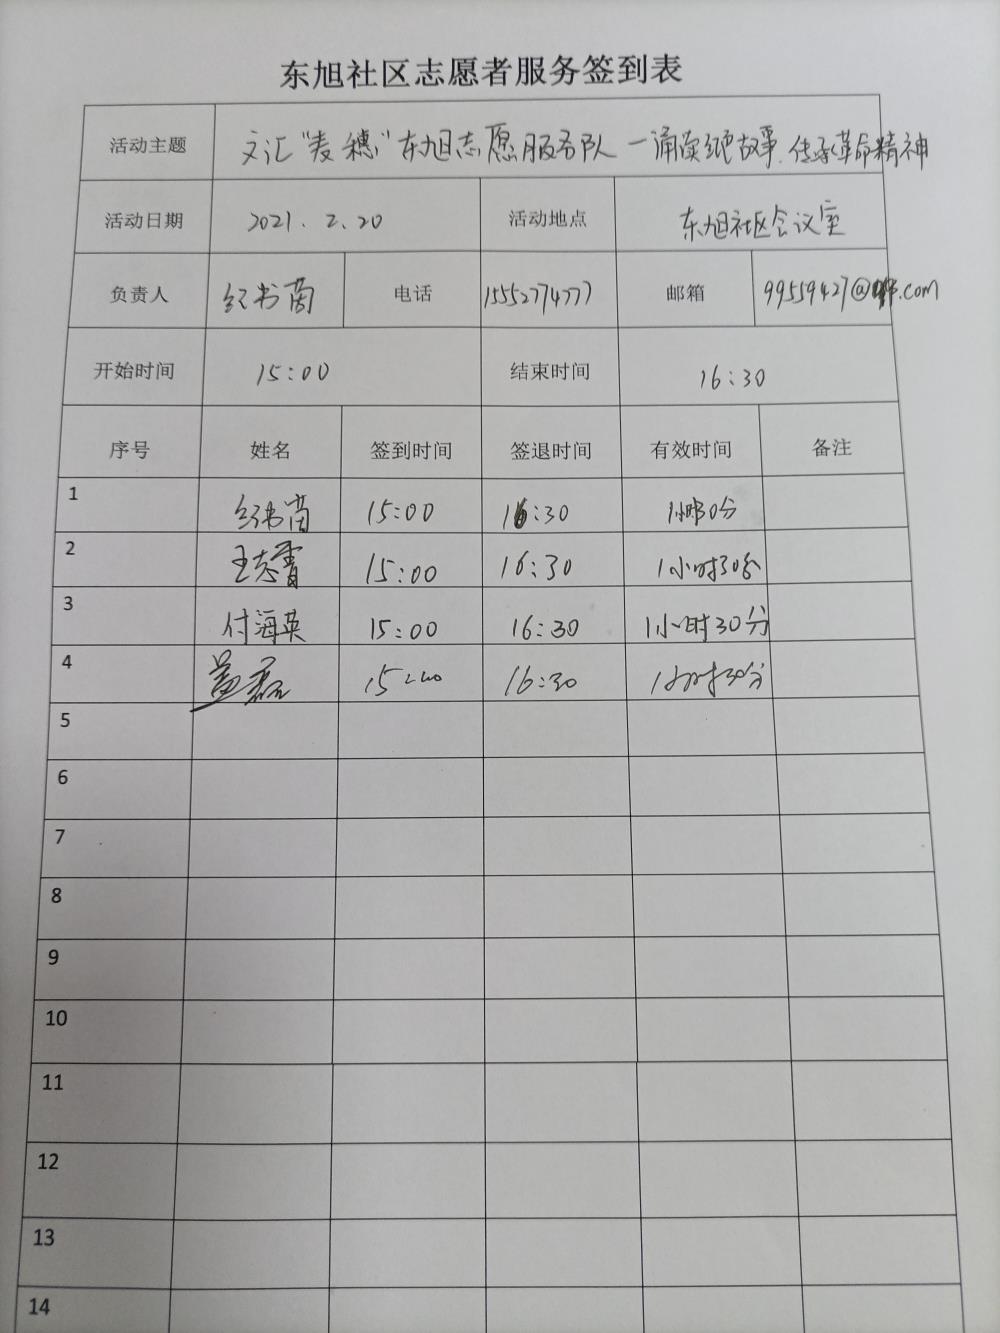 东旭社区志愿者服务签到表
活动主题 文汇"麦穗"东旭志愿服务队—诵读红色故事.传承革命精神
活动日期 2021.2.20 活动地点 东旭社区会议室
负责人 书茵 电话 15552774777 邮箱 99559427@qq.com
开始时间 15:00 结束时间 16:30
序号 姓名 签到时间 签退时间 有效时间 备注
1 书茵 15:00 16:30 1小时30分
2 王志 15:00 16:30 1小时30分
3 付海英 15:00 16:30 1小时30分
4 磊 15:00 16:30 1小时30分
5
6
7
8
9
10
11
12
13
14